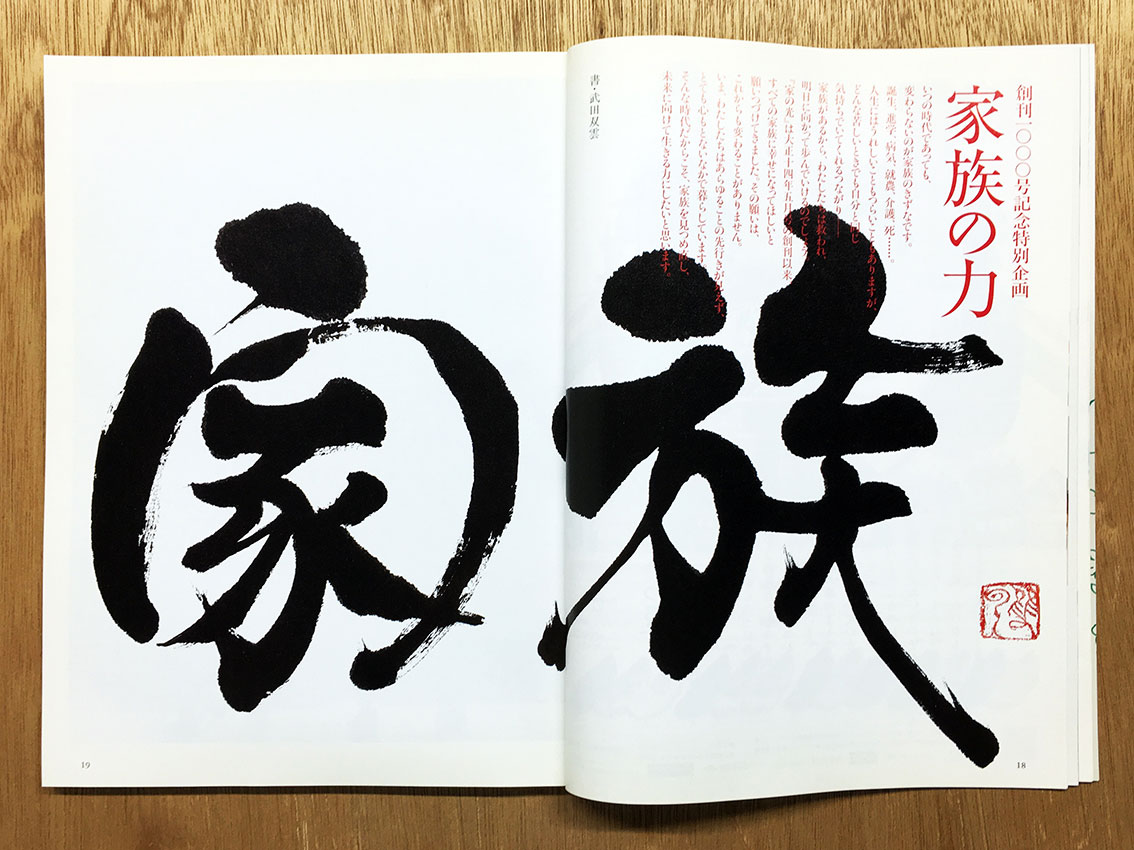 創刊一〇〇〇号記念特別企画
家族の力
いつの時代であっても、
変わらないのが家族のきずなです。
誕生、進学、病気、就農、介護、死……。
人生にはうれしいこともつらいこともありますが、
どんな苦しいときでも自分と同じ
気持ちでいてくれるつながり——
家族があるから、わたしたちは救われ、
明日に向かって歩んでいけるのでしょう。
『家の光』は大正十四年五月の創刊以来、
すべての家族に幸せになってほしいと
願いつづけてきました。その願いは、
これからも変わることがありません。
いま、わたしたちはあらゆることの先行きが見えず、
とても心もとないなかで暮らしています。
そんな時代だからこそ、家族を見つめ直し、
未来に向けて生きる力にしたいと思います。
書・武田双雲
家族
18
19